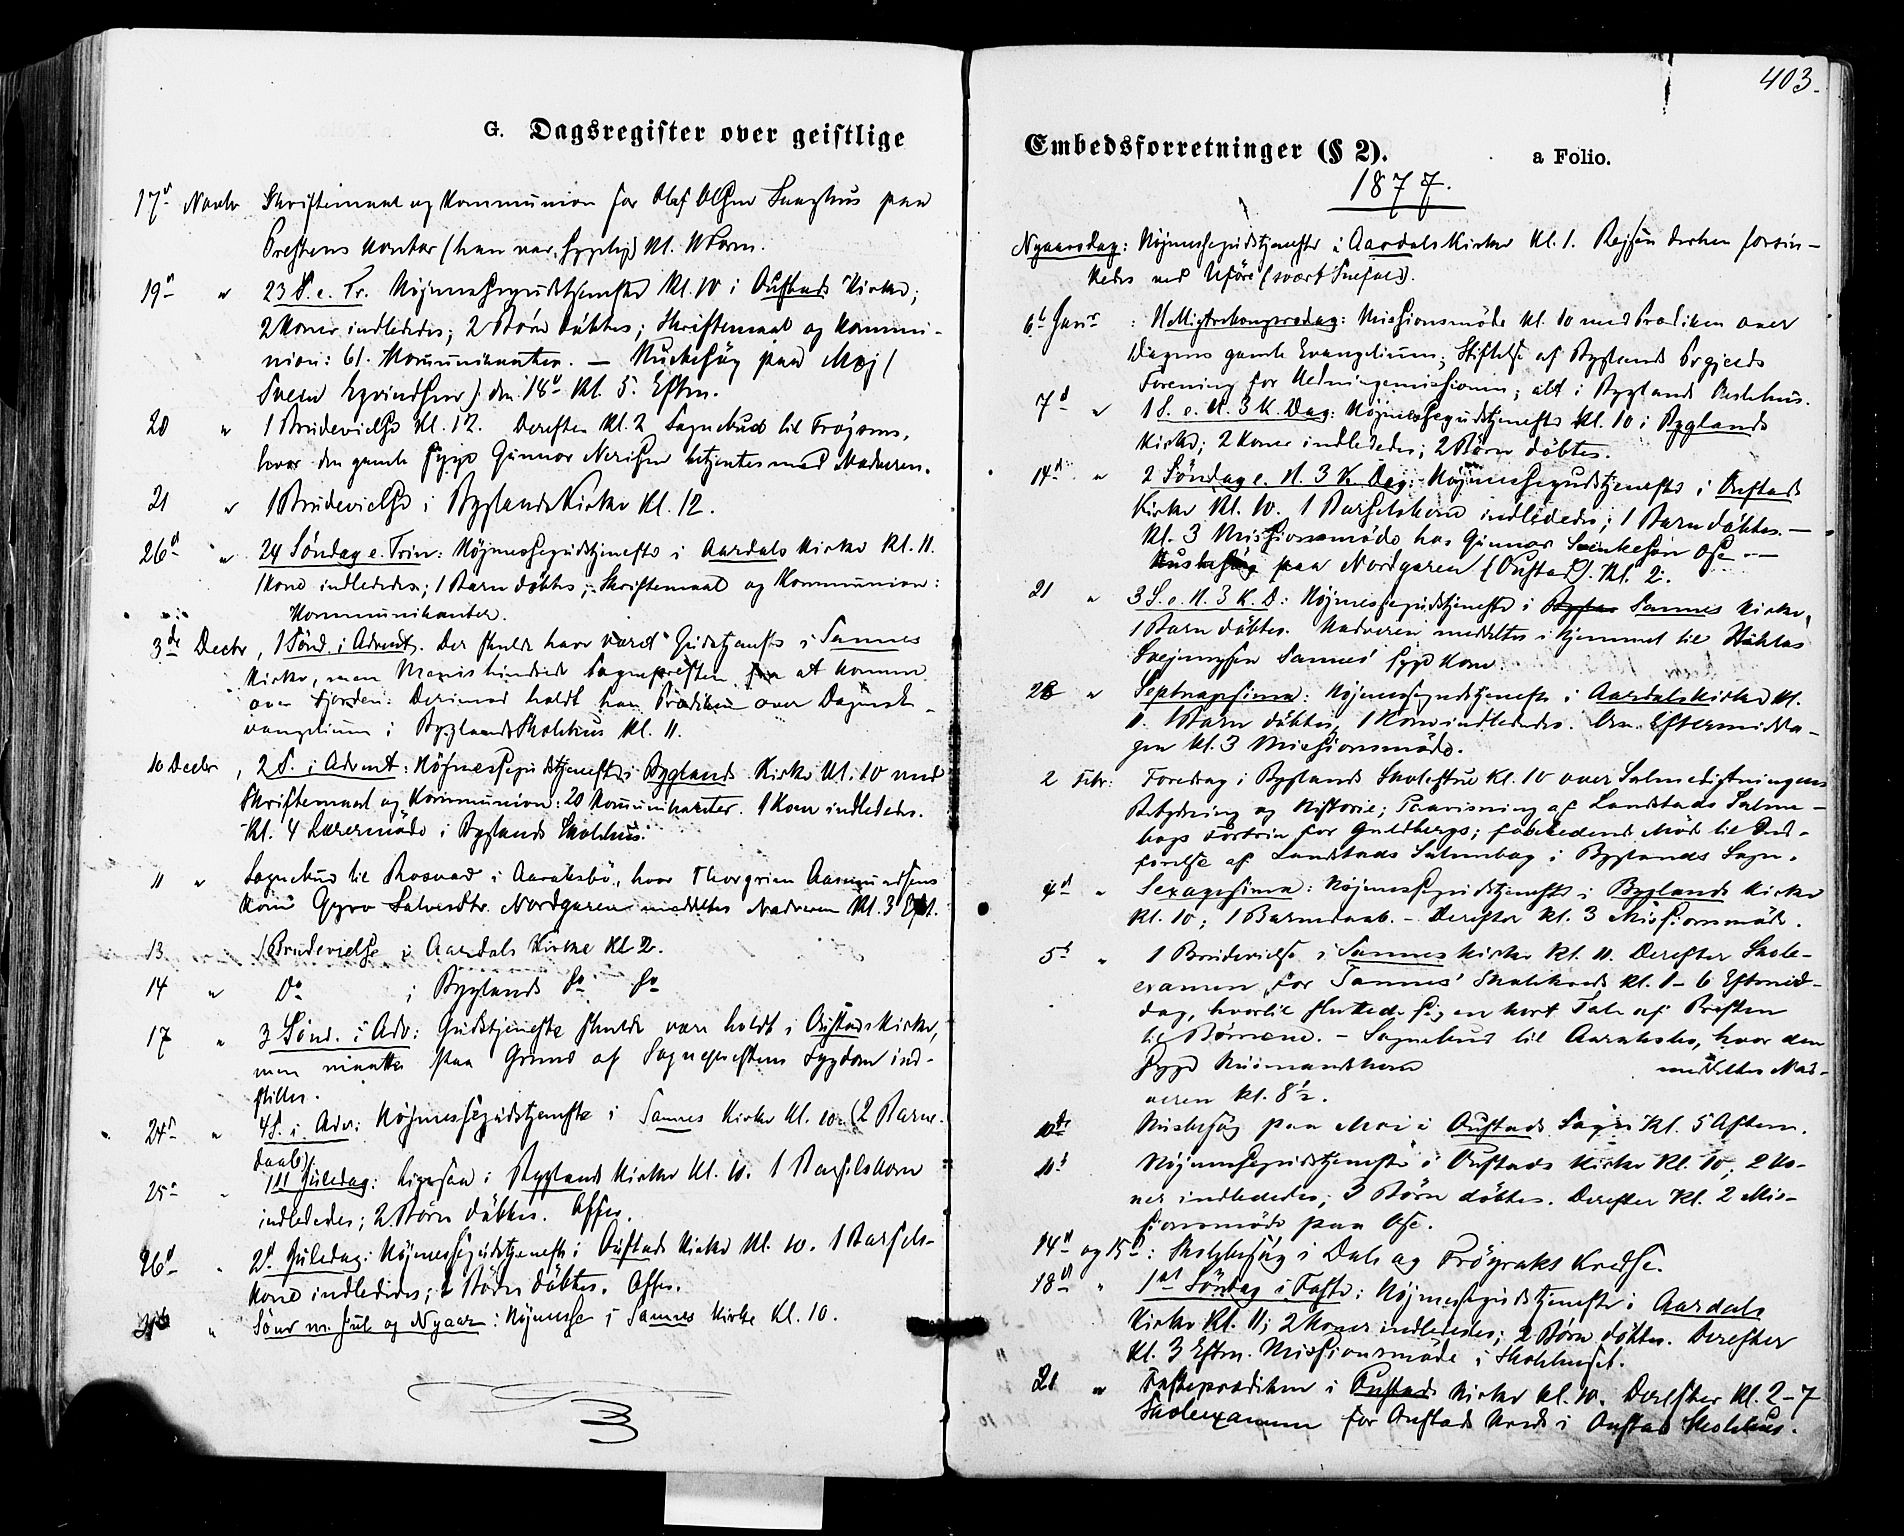 G. Dagsregister over geistlige
17d Novbr Skriftemaal og Kommunion for Olaf Olsen Langhus paa
Prestens Kontor (han var sygelig) Kl. Form.
19d " 23 S. e. Tr. Højmessegudstjeneste Kl. 10 i Øustads Kirke;
2 Koner indlededes; 2 Børn døbtes; Skriftemaal og Kommu-
nion: 61. Kommunikanter. — Husbesøg paa Moj (
Svein Eyvindsen) den 18d Kl. 5. Eftm.
20 " 1 Brudevielse Kl. 12. Derefter Kl. 2 Sognebud til Frøysnes,
hvor den gamle syge Gunnar Nerisen betjentes med Nadveren.
21 " 1 Brudevielse i Byglands Kirke Kl. 12.
26d " 24 Søndag e. Trin: Højmessegudstjeneste i Aardals Kirke Kl. 11.
1 Kone indlededes; 1 Barn døbtes; Skriftemaal og Kommunion:
Kommunikanter.
3de Decbr, 1 Sønd. i Advent. Der skulde have været Gudstjeneste i Sannes
Kirke, men Menis hindrede Sognepresten fra at komme
over Fjorden. Derimod holdt han Prædiken over Dagens E-
vangelium i Byglands Skolehus Kl. 11.
10 Decbr, 2 S. i Advent: Højmessegudstjeneste i Byglands Kirke Kl. 10 med
Skriftemaal og Kommunion: 20 Kommunikanter. 1 Kone indlededes.
Kl. 4 Lærermøde i Byglands Skolehus.
11 " Sognebud til Rosvad i Aaraksbø, hvor Thorgrim Aasmundsens
Kone Gyro Salvesdtr. Nordgaren meddeltes Nadveren Kl. 3 Eft.
13 1 Brudevielse i Aardals Kirke Kl 2.
14 " Do i Byglands do do
17 " 3 Sønd. i Adv: Gudstjeneste skulde være holdt i Øustads Kirke,
men maatte paa Grund af Sogneprestens Sygdom ind-
stilles.
24d " 4 S. i Adv: Højmessegudstjeneste i Sannes Kirke Kl. 10. (2 Barne-
daab)
25d " 1st Juledag: Ligesaa i Byglands Kirke Kl. 10. 1 Barselskone
indlededes; 2 Børn døbtes. Offer.
26d " 2d Juledag: Højmessegudstjeneste i Øustads Kirke Kl. 10. 1 Barsels-
kone indlededes; 2 Børn døbtes. Offer.
" Sønd. m. Jul og Nyaar: Højmesse i Sannes Kirke Kl. 10.
403.
Embedsforretninger (§ 2).
a Folio.
1877.
Nyaarsdag: Højmessegudstjeneste i Aardals Kirke Kl. 1. Rejsen derhen forsin-
kedes ved Uføre (svært Snefald).
6t Janr : Helligtrekongersdag: Missionsmøde Kl. 10 med Prædiken over
Dagens gamle Evangelium; Stiftelse af Byglands Prgjelds
Forening for Hedningemissionen; alt i Byglands Skolehus.
7d " 1 S. e. H. 3 K. Dag: Højmessegudstjeneste Kl. 10 i Byglands
Kirke; 2 Koner indlededes; 2 Børn døbtes.
14d " 2 Søndag e. H. 3 K. Dag: Højmessegudstjeneste i Øustads
Kirke Kl. 10. 1 Barselskone indlededes; 1 Barn døbtes. —
Kl. 3 Missionsmøde hos Gunnar Svenkesen Ose —
Husbesøg paa Nordgaren (Øustad). Kl. 2.
21 " 3 S. e. H. 3 K. D: Højmessegudstjeneste i Sannes Kirke,
1 Barn døbtes. Nadveren meddeltes i Hjemmet til
Sannes' syge Kone.
28 " Septuagesima: Højmessegudstjeneste i Aardals Kirke Kl.
11. 1 Barn døbtes, 1 Kone indlededes. Om Eftermidda-
gen Kl. 3 Missionsmøde.
2 Febr: Foredrag i Byglands Skolestue Kl. 10 over Salmedigtningens
Betydning og Historie; Paavisning af Landstads Salme-
bogs Fortrin for Guldbergs; forberedende Møde til Ind-
førelse af Landstads Salmebog i Byglands Sogn.
4d " Sexagesima: Højmessegudstjeneste i Byglands Kirke
Kl. 10; 1 Barnedaab. - Derefter Kl. 3 Missionsmøde.
5t " 1 Brudevielse i Sannes Kirke Kl. 11. Derefter Skole-
examen for Sannes' Skolekreds Kl. 1-6 Eftermid-
dag, hvortil sluttede sig en kort Tale af Presten
til Børnene. - Sognebud til Aaraksbø, hvor den
syge Husmandskone meddeltes Nad-
veren Kl. 8½.
10de Husbesøg paa Moi i Øustads Sogn Kl. 5 Aftern.
11t Højmessegudstjeneste i Øustads Kirke Kl. 10, 2 Ko-
ner indlededes; 3 Børn døbtes. Derefter Kl. 2 Mis-
sionsmøde paa Ose.
14d og 15d: Skolebesøg i Dale og Frøyraks Kredse.
18d " 1st Søndag i Faste: Højmessegudstjeneste i Aardals
Kirke Kl. 11; 2 Koner indlededes; 2 Børn døbtes. Derefter
Kl. 3 Eftm. Missionsmøde i Skolehuset.
21 " Fasteprædiken i Øustads Kirke Kl. 10. Derefter Kl. 2-7
Skoleexamen for Øustads Kreds i Øustad Skolehus.